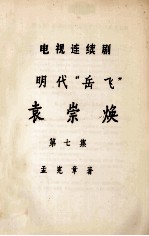 电视连续剧
明代“岳飞”
袁崇焕
第七集
孟宪章著